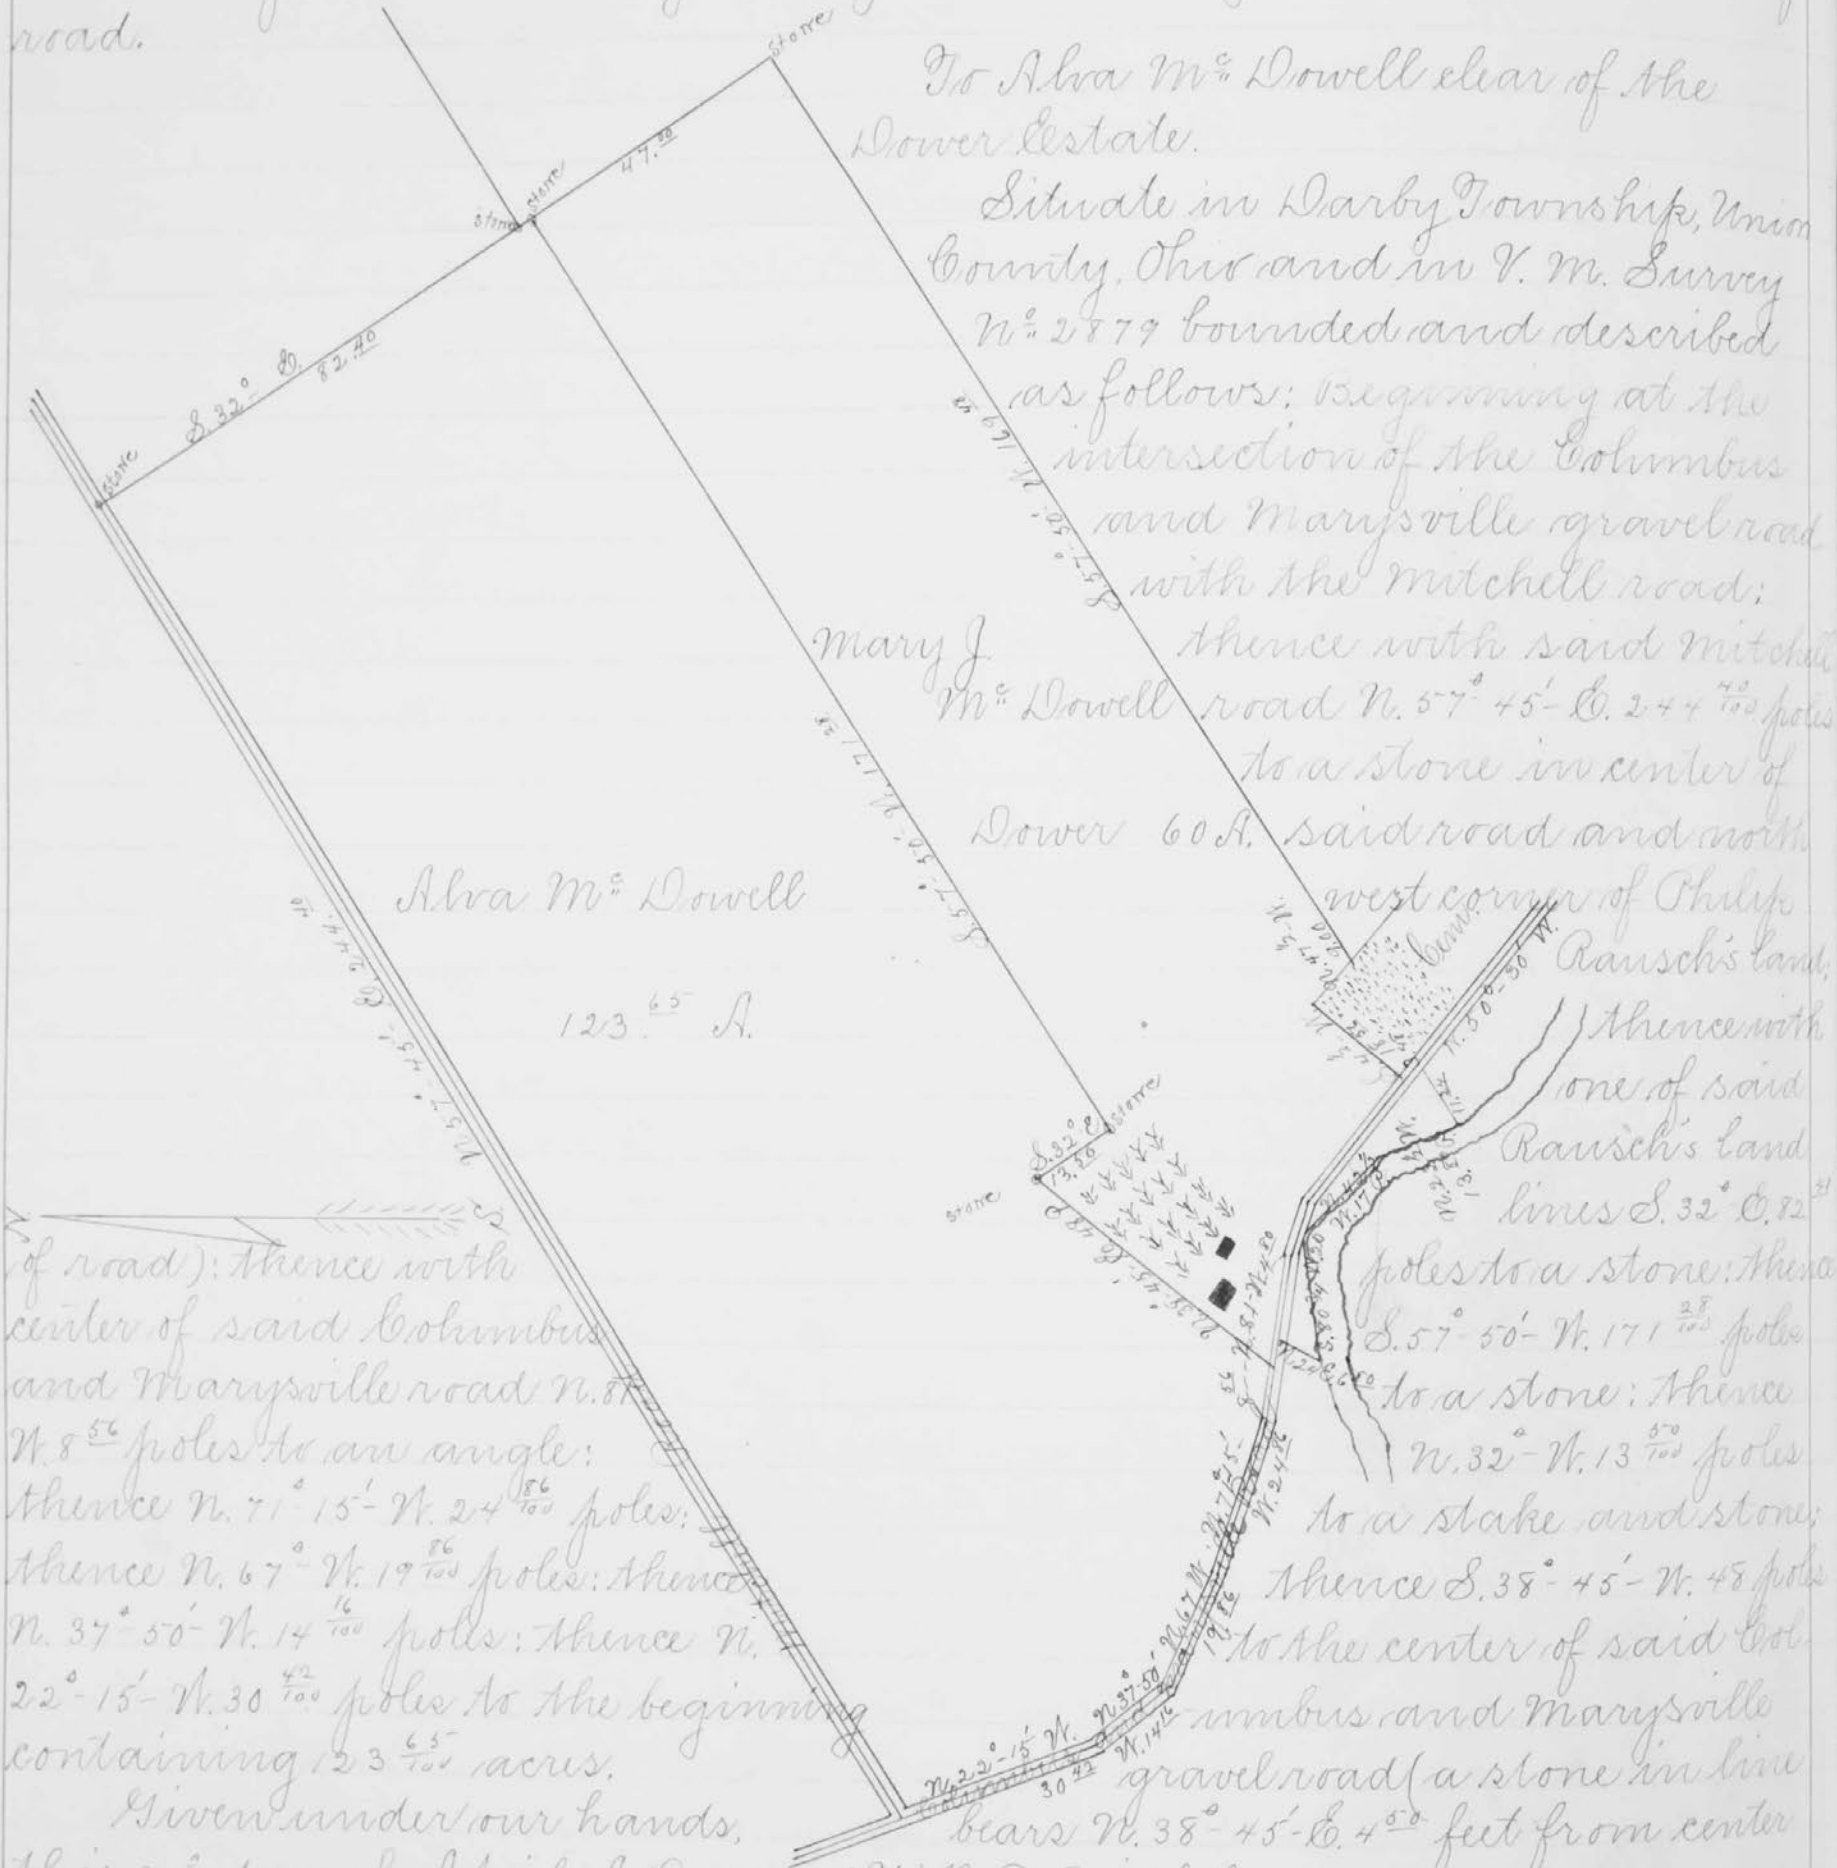 road.
To Alva Mc Dowell clear of the
Dower Eestate.
Situate in Darby Township, Union
County, Ohio and in V. M. Survey
No 2879 bounded and described
as follows: Beginning at the
intersection of the Columbus
and Marysville gravel road
with the Mitchell road:
thence with said Mitchell
road N. 57°- 45'- E. 244 40/100 poles
to a stone in center of
said road and north
west corner of Philip
Rausch's land;
thence with
one of said
Rausch's land
lines S. 32° E. 82
poles to a stone: thence
S. 57°- 50'- W. 171 28/100 poles
to a stone: thence
N. 32°- W. 13 50/100 poles
to a stake and stone;
thence S. 38°- 45'- W. 48 poles
to the center of said Col-
umbus and Marysville
gravel road (a stone in line
bears N. 38°- 45'- E. 4 50 feet from center
of road): thence with
center of said Columbus
and Marysville road N. 81°
W. 8 56 poles to an angle:
thence N. 71°- 15'- W. 24 86/100 poles:
thence N. 67°- W. 19 86/100 poles: thence
N. 37°- 50'- W. 14 16/100 poles: thence N.
22°- 15'- W. 30 42/100 poles to the beginning
containing 123 65/100 acres.
Given under our hands,
Stone
47.00
Stone
Stone
S. 32° E.
82.40
Stone
S. 57°- 50' W. 169 48
Mary J.
Mc Dowell
Dower 60 A.
S. 57°- 50'- W. 171 28
Alva Mc Dowell
123 65 A.
N. 57°- 45'- E. 244.40
Cem.
N. 50°- 30' W.
Stone
S. 32° E.
13.50
Stone
N. 38°- 45' E. 48 P.
N. 81°- W. 4 80
N. 71°- 15'
W. 24 86
N. 67 W.
19 86
N. 37°- 50'
W. 14 16
N. 22°- 15' W.
30 42
S